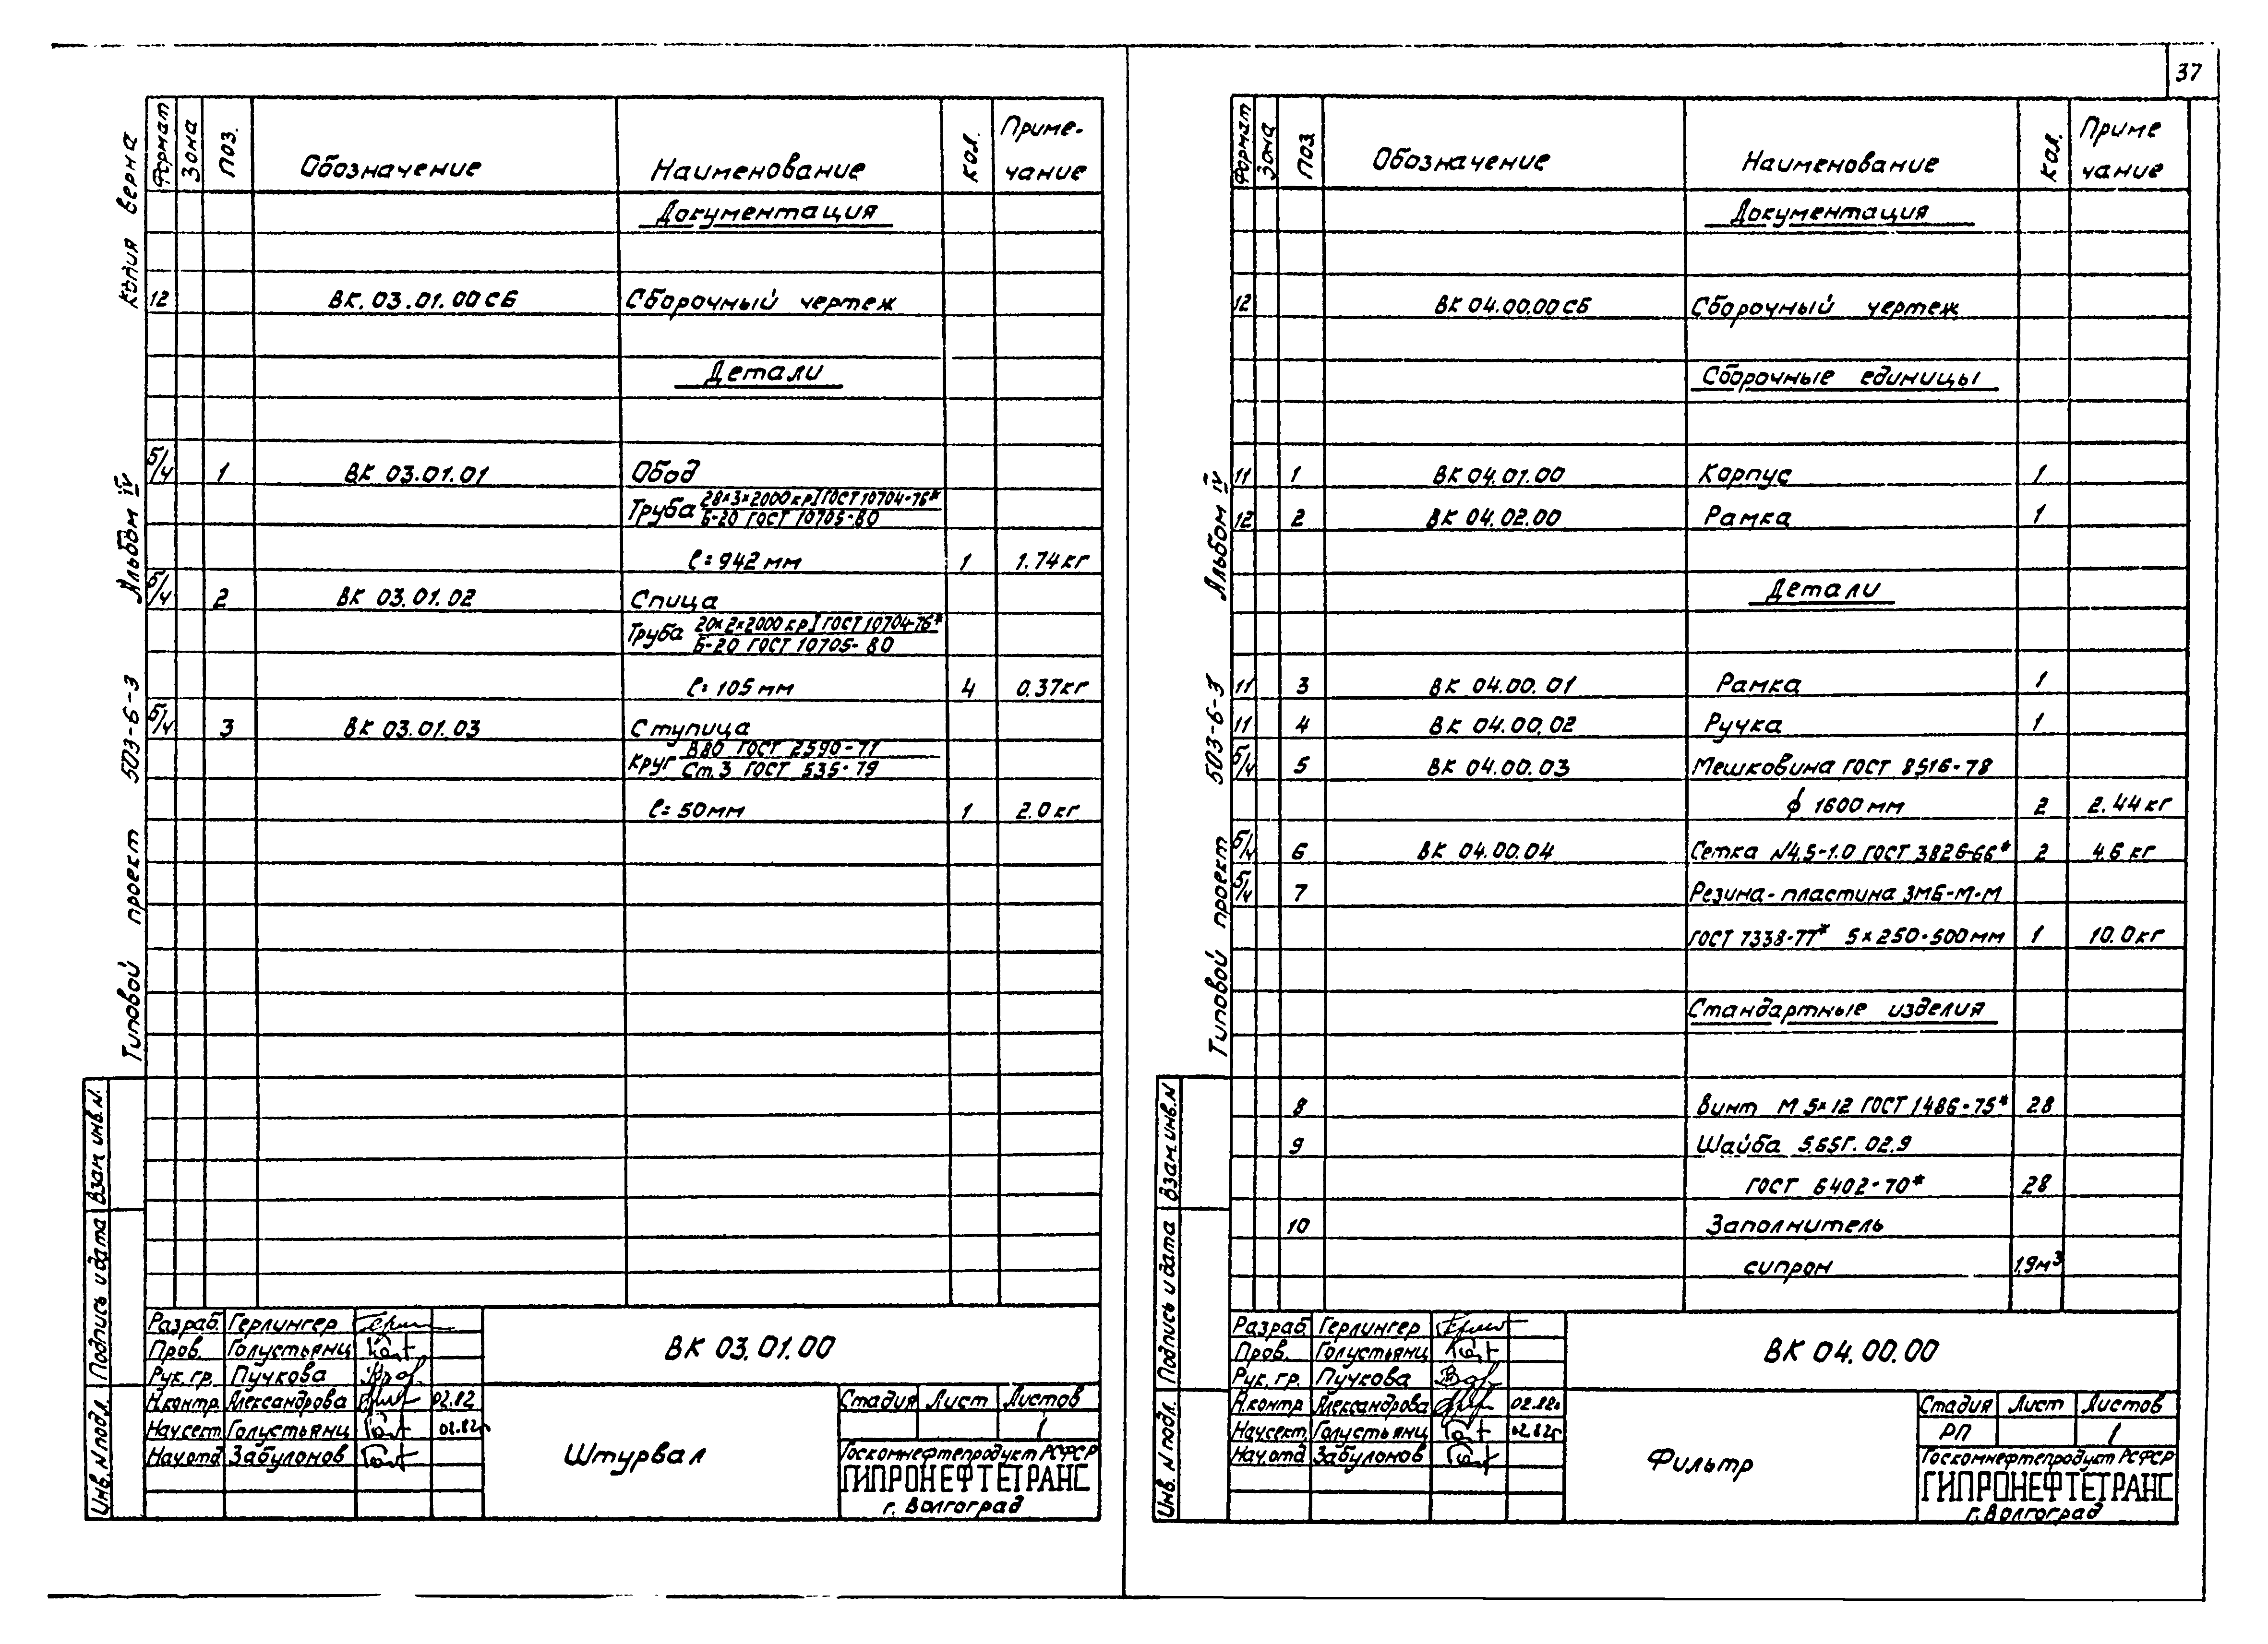 37
Копия верна
Альбом IV
Типовой проект 503-6-3
Формат Зона Поз. Обозначение Наименование Кол. Приме-
чание
Документация
12 ВК. 03.01.00 СБ Сборочный чертеж
Детали
Б/ч 1 ВК 03.01.01 Обод
Труба 28×3×2000 кр I ГОСТ 10704-76*
Б-20 ГОСТ 10705-80
ℓ= 942 мм 1 1.74 кг
Б/ч 2 ВК 03.01.02 Спица
Труба 20×2×2000 кр I ГОСТ 10704-76*
Б-20 ГОСТ 10705-80
ℓ= 105 мм 4 0.37 кг
Б/ч 3 ВК 03.01.03 Ступица
Круг В80 ГОСТ 2590-71
Ст.3 ГОСТ 535-79
ℓ= 50 мм 1 2.0 кг
Взам. инв. N.
Подпись и дата
Инв. N подл.
Разраб. Герлингер
Пров. Голустьянц
Рук. гр. Пучкова
Н.контр. Александрова 02.82
Нач.сект. Голустьянц 02.82г
Нач.отд. Забулонов
ВК 03.01.00
Штурвал
Стадия Лист Листов
1
Госкомнефтепродукт РСФСР
ГИПРОНЕФТЕТРАНС
г. Волгоград
Альбом IV
Типовой проект 503-6-3
Формат Зона Поз. Обозначение Наименование Кол. Приме
чание
Документация
12 ВК 04.00.00 СБ Сборочный чертеж
Сборочные единицы
11 1 ВК 04.01.00 Корпус 1
12 2 ВК 04.02.00 Рамка 1
Детали
11 3 ВК 04.00.01 Рамка 1
11 4 ВК 04.00.02 Ручка 1
Б/ч 5 ВК 04.00.03 Мешковина ГОСТ 8516-78
ϕ 1600 мм 2 2.44 кг
Б/ч 6 ВК 04.00.04 Сетка N4,5-1.0 ГОСТ 3826-66* 2 4.6 кг
Б/ч 7 Резина-пластина 3МБ-М-М
ГОСТ 7338-77* 5×250×500 мм 1 10.0 кг
Стандартные изделия
8 Винт М 5×12 ГОСТ 1486-75* 28
9 Шайба 5.65Г. 02.9
ГОСТ 6402-70* 28
10 Заполнитель
сипрон 1,9 м³
Взам. инв. N
Подпись и дата
Инв. N подл.
Разраб. Герлингер
Пров. Голустьянц
Рук. гр. Пучкова
Н.контр. Александрова 02.82г
Нач.сект. Голустьянц 02.82г
Нач.отд Забулонов
ВК 04.00.00
Фильтр
Стадия Лист Листов
РП 1
Госкомнефтепродукт РСФСР
ГИПРОНЕФТЕТРАНС
г. Волгоград